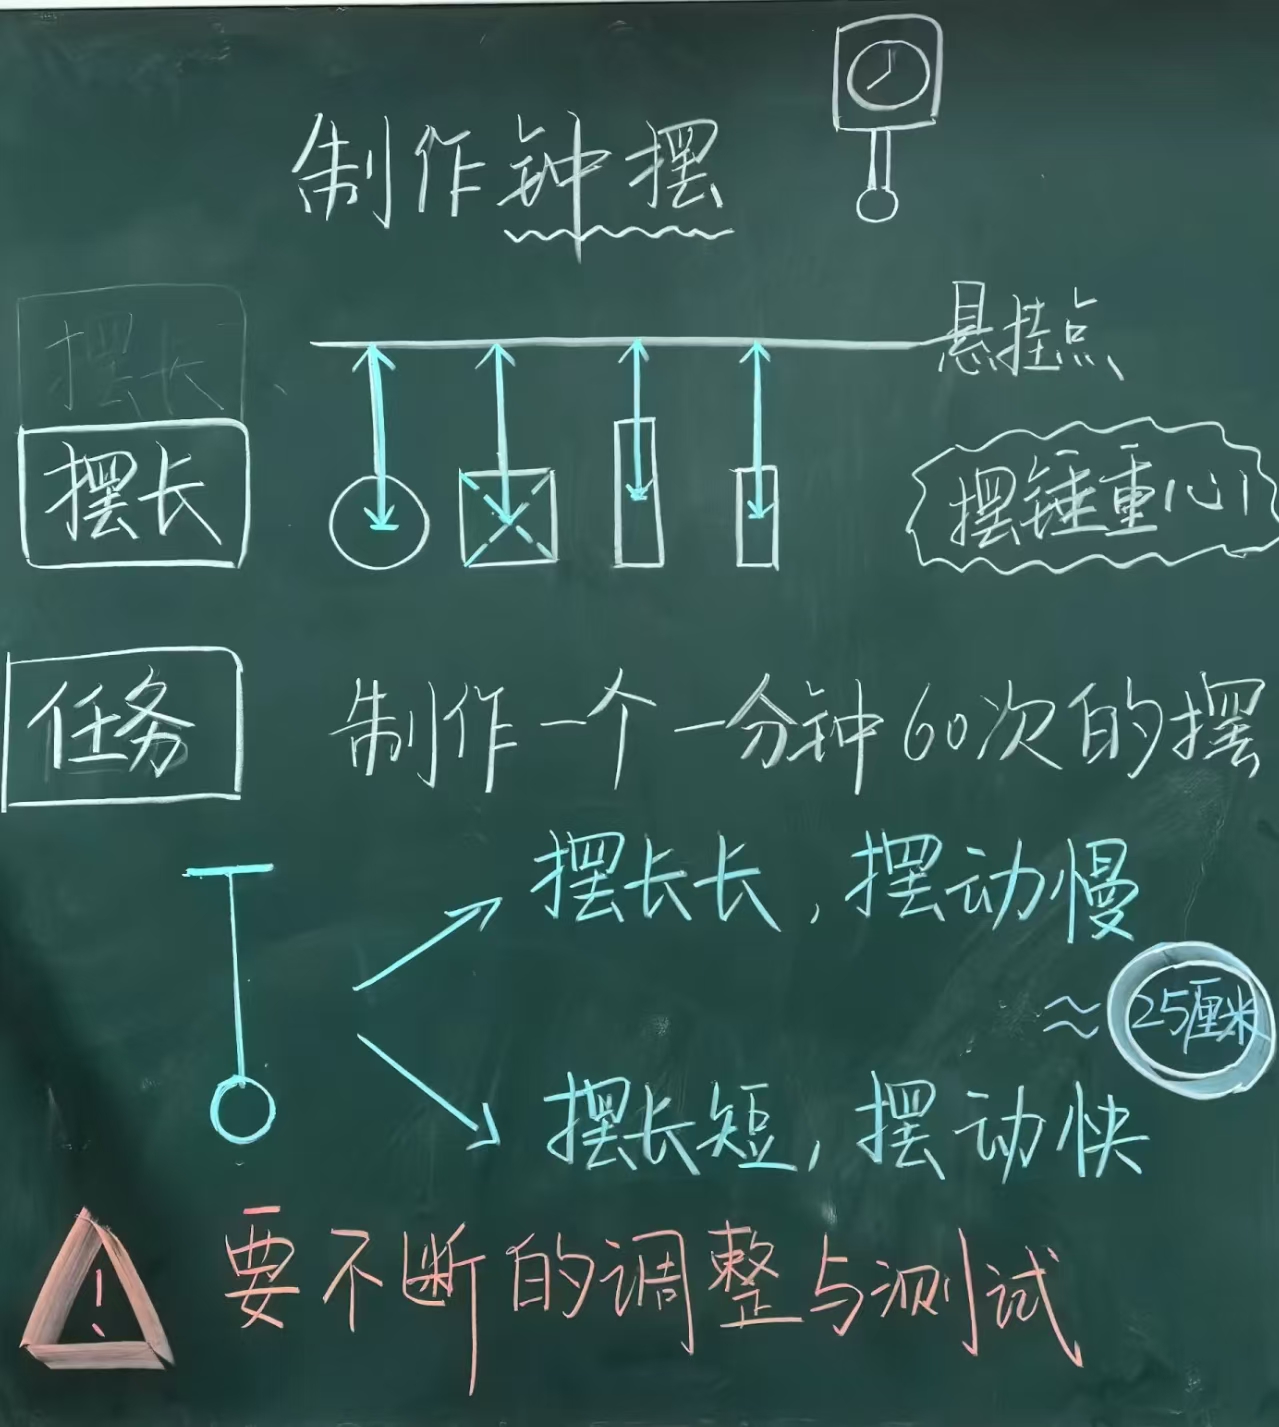 制作钟摆
摆长
悬挂点
摆长
摆锤重心
任务
制作一个一分钟60次的摆
摆长长，摆动慢
≈25厘米
摆长短，摆动快
! 要不断的调整与测试